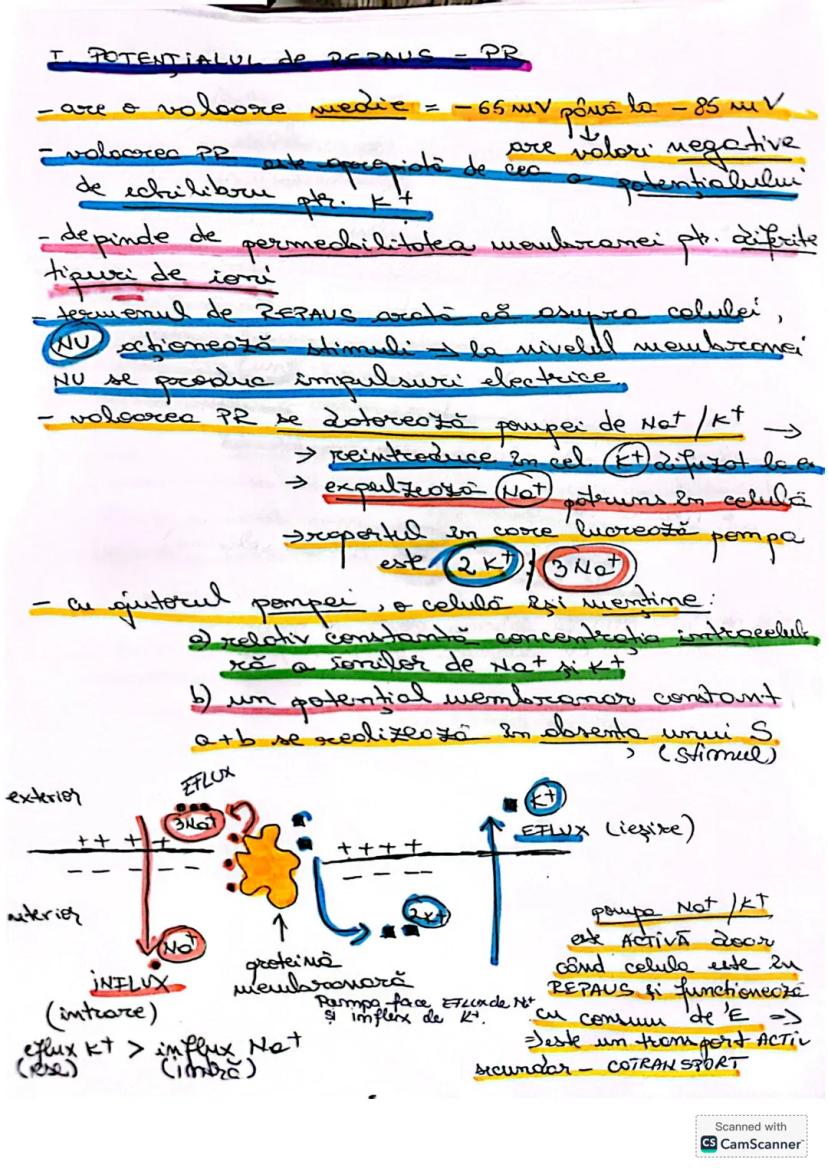 I. POTENȚIALUL de REPAUS = PR
- are o valoare medie = -65 mV până la -85 mV
are valori negative
- valoarea PR este apropiată de cea a potențialului
de echilibru ptr. K+
- depinde de permeabilitatea membranei pt. diferite
tipuri de ioni
- termenul de REPAUS arată că asupra celulei,
NU acționează stimuli → la nivelul membranei
NU se produc impulsuri electrice.
- valoarea PR se datorează pompei de Na+ / K+ →
→ reintroduce în cel. K+ difuzat la ex
→ expulzează Na+ pătruns în celulă
→ raportul în care lucrează pompa
este 2 K+ / 3 Na+
- cu ajutorul pompei, o celulă își menține:
a) relativ constantă concentrația intracelul
ră a ionilor de Na+ și K+
b) un potențial membranar constant
a+b se realizează în absența unui S
(stimul)
exterior
EFLUX
3Na+
K+
EFLUX (ieșire)
++ + +
++++
- - - -
- - - -
interior
Na+
2K+
INFLUX
(intrare)
proteină
membranară
Pompa face EFLUX de Na+
și influx de K+.
eflux K+ > influx Na+
(iese) (intră)
pompa Na+ / K+
este ACTIVĂ doar
când celula este în
REPAUS și funcționează
cu consum de E =>
=> este un transport ACTIV
secundar - COTRANSPORT
Scanned with
CS CamScanner